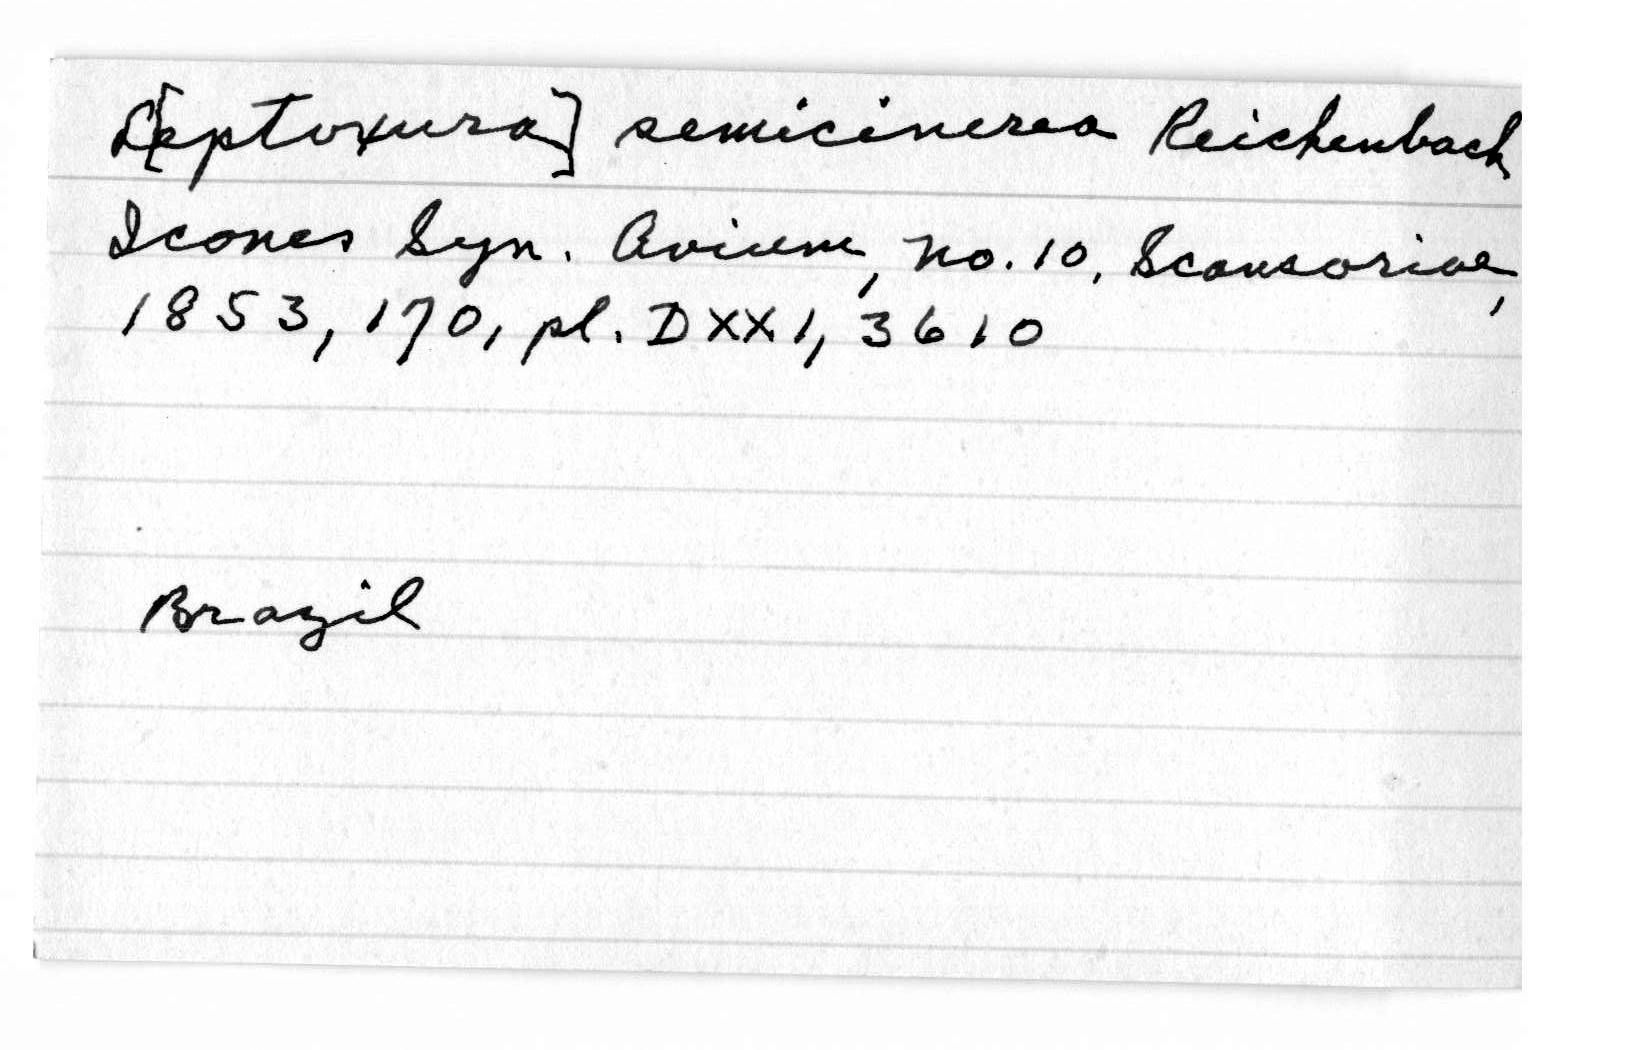 L[eptoxura] semicinerea Reichenbach
Icones Syn. Avium, no. 10, Scansoriae,
1853, 170, pl. DXXI, 3610
Brazil